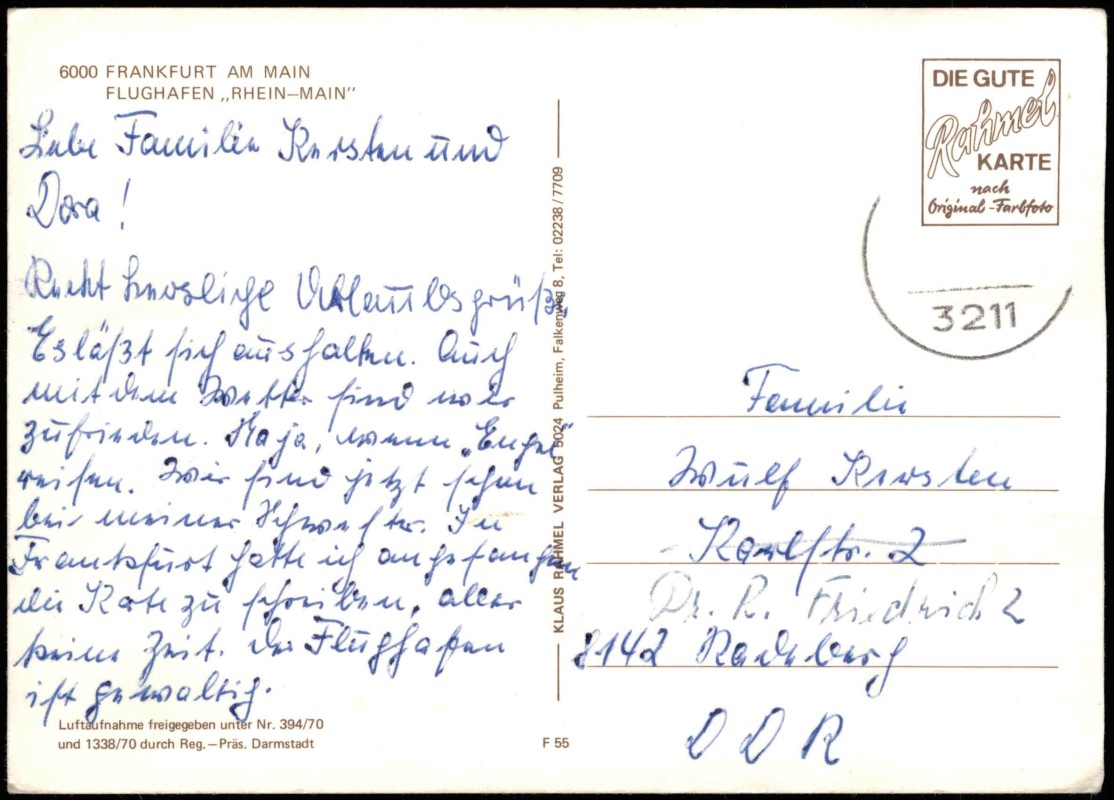 6000 FRANKFURT AM MAIN
FLUGHAFEN „RHEIN—MAIN”
Liebe Familie Kersten und
Dora!
Recht herzliche Urlaubsgrüße.
Es läßt sich aushalten. Auch
mit dem Wetter sind wir
zufrieden. Na ja, wenn „Engel”
reisen. Wir sind jetzt schon
bei meiner Schwester. In
Frankfurt hatte ich angefangen
die Karte zu schreiben, aber
keine Zeit. Der Flughafen
ist gewaltig.
Luftaufnahme freigegeben unter Nr. 394/70
und 1338/70 durch Reg.—Präs. Darmstadt
F 55
KLAUS RAHMEL VERLAG 5024 Pulheim, Falkenweg 8, Tel: 02238/7709
DIE GUTE
Rahmel
KARTE
nach
Original-Farbfoto
3211
Familie
Wulf Kersten
Karlstr. 2
Dr. R. Friedrich 2
8142 Radeberg
DDR